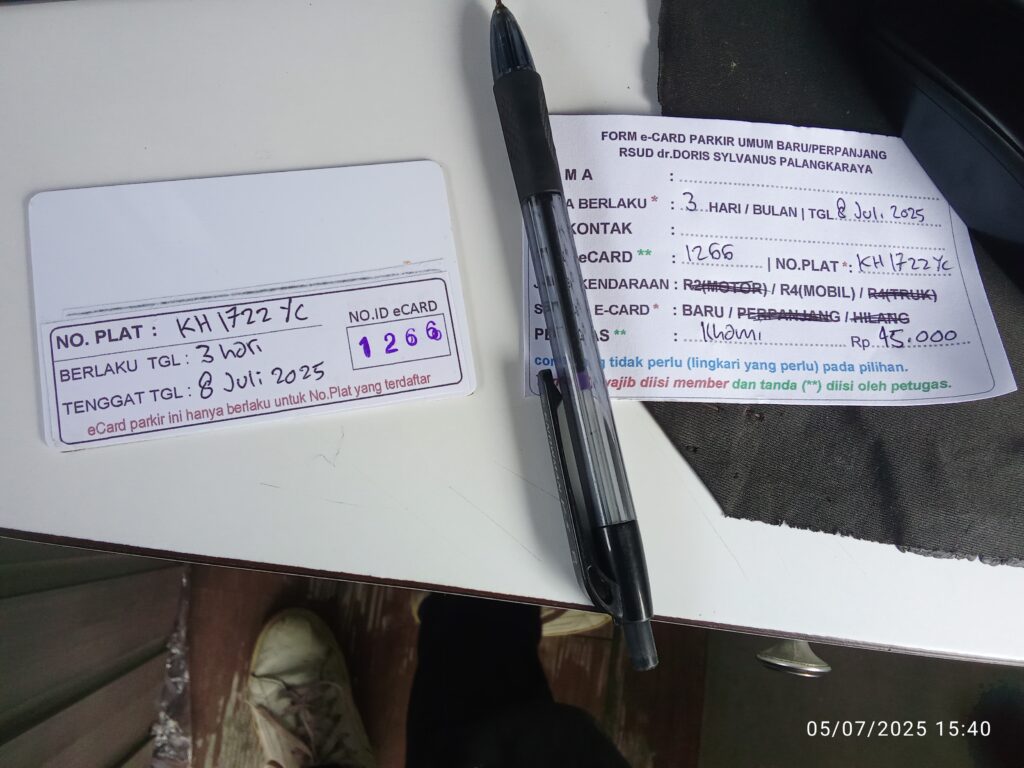 NO. PLAT : KH 1722 YC
BERLAKU TGL : 3 hari
TENGGAT TGL : 8 Juli 2025
NO.ID eCARD
1266
eCard parkir ini hanya berlaku untuk No.Plat yang terdaftar
FORM e-CARD PARKIR UMUM BARU/PERPANJANG
RSUD dr.DORIS SYLVANUS PALANGKARAYA
M A :
A BERLAKU * : 3 HARI / BULAN | TGL 8 Juli 2025
KONTAK :
eCARD ** : 1266 | NO.PLAT * : KH 1722 YC
J KENDARAAN : R2(MOTOR) / R4(MOBIL) / R4(TRUK)
S E-CARD * : BARU / PERPANJANG / HILANG
PE AS ** : Khami Rp. 95.000
tidak perlu (lingkari yang perlu) pada pilihan.
wajib diisi member dan tanda (**) diisi oleh petugas.
05/07/2025 15:40